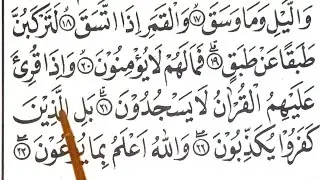 وَالَّيْلِ وَمَا وَسَقَ ۝١٧ وَالْقَمَرِ اِذَا اتَّسَقَ ۝١٨ لَتَرْكَبُنَّ
طَبَقًا عَنْ طَبَقٍ ۝١٩ فَمَا لَهُمْ لَا يُؤْمِنُوْنَ ۝٢٠ وَاِذَا قُرِئَ
عَلَيْهِمُ الْقُرْاٰنُ لَا يَسْجُدُوْنَ ۝٢١ بَلِ الَّذِيْنَ
كَفَرُوْا يُكَذِّبُوْنَ ۝٢٢ وَاللّٰهُ اَعْلَمُ بِمَا يُوْعُوْنَ ۝٢٣